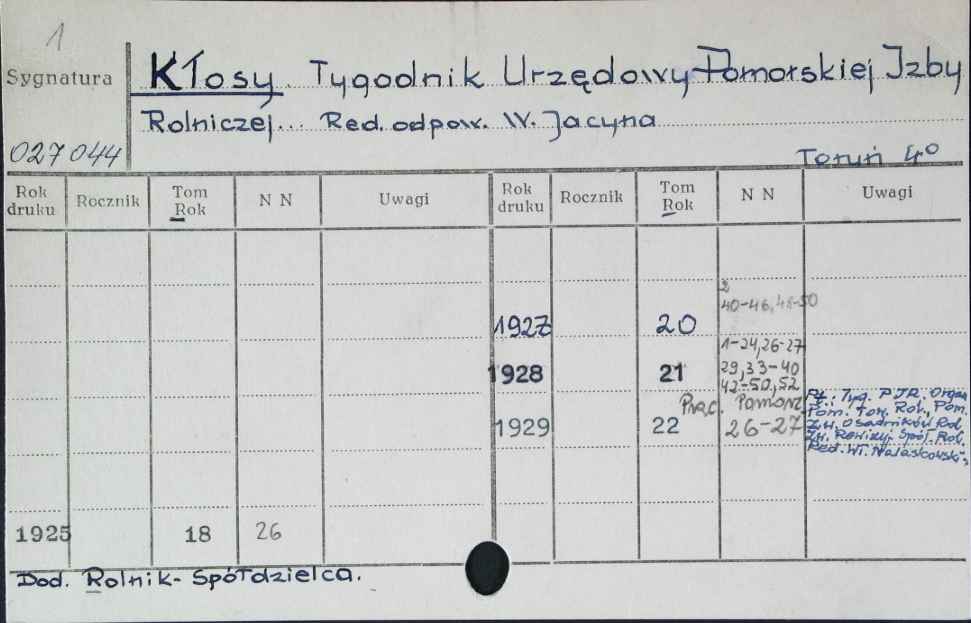 1
Sygnatura
Kłosy. Tygodnik Urzędowy Pomorskiej Izby
Rolniczej... Red. odpow. W. Jacyna
027044
Toruń 4°
Rok druku Rocznik Tom Rok N N Uwagi Rok druku Rocznik Tom Rok N N Uwagi
2
40-46, 48-50
1927 20
1-24, 26-27
1928 21 29, 33-40
42-50, 52
Prac. Pomorz.
1929 22 26-27
Pt.: Tyg. PIR. Organ
Pom. Tow. Rol., Pom.
Zw. Osadników Rol.
Zw. Rewizyj. Spół. Rol.
Red. Wł. Nalaskowski
1925 18 26
Dod. Rolnik-Spółdzielca.